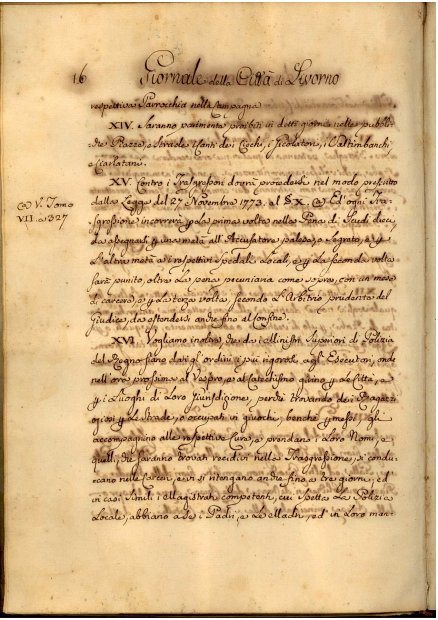 16 Giornale della Città di Livorno
respettiva Parrocchia nella Campagna
XIV. Saranno parimente proibiti in detti giorni nelle pubbli-
che Piazze, e Strade i Canti dei Ciechi, i Giocolatori, i Saltimbanchi,
e Ciarlatani.
XV. Contro i Trasgressori dovrà procedersi nel modo prescritto
dalla Legge del 27 Novembre 1773. al §X. @ Ed ogni Tra-
@ V. Tomo
VII. a 327
sgressione incorrerà p. la prima volta nella Pena di Scudi dieci
da assegnarsi p. una metà all'Accusatore palese, o segreto, e p.
l'altra metà a i respettivi Spedali Locali, e p. la seconda volta
sarà punito, oltre la pena pecuniaria come sopra, con un mese
di carcere, e p. la terza volta, secondo l'Arbitrio prudente del
Giudice, da estendersi anche fino al Confine.
XVI. Vogliamo inoltre, che da i Ministri Superiori di Polizia
del Regno siano dati gl'ordini i più rigorosi agl'Esecutori, onde
nell'ore prossime al Vespro, e al Catechismo girino p. le Città, e
p. i Luoghi di Loro Giurisdizione, perchè trovando dei Ragazzi
oziosi p. le strade, o occupati in giuochi, benchè permessi, gli
accompagnino alle respettive Cure, e prendano i Loro Nomi, e
quelli che saranno trovati recidivi nella Trasgressione, si condu-
cano nelle Carceri, e vi si ritengano anche fino a tre giorni, ed
in casi simili i Magistrati competenti, cui spetta la Polizia
Locale, abbiano a se i Padri, e le Madri, ed in Loro man-